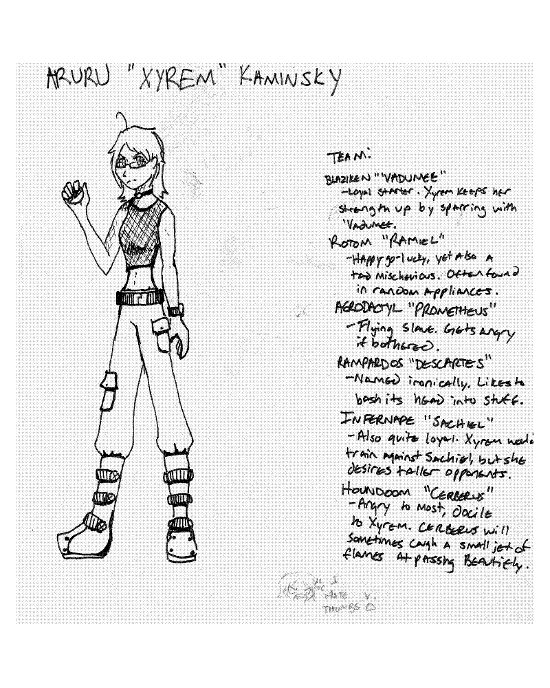 ARURU "XYREM" KAMINSKY
TEAM:
BLAZIKEN "VADUMEE"
-Loyal starter. Xyrem keeps her
strength up by sparring with
Vadumee.
ROTOM "RAMIEL"
-Happy go-lucky, yet also a
tad mischevious. Often found
in random appliances.
AERODACTYL "PROMETHEUS"
-Flying slave. Gets angry
if bothered.
RAMPARDOS "DESCARTES"
-Named ironically. Likes to
bash its head into stuff.
INFERNAPE "SACHIEL"
-Also quite loyal. Xyrem would
train against Sachiel, but she
desires taller opponents.
HOUNDOOM "CERBERUS"
-Angry to most, docile
to Xyrem. Cerberus will
sometimes cough a small jet of
flames at passing Beautifly.
HATE
THUMBS